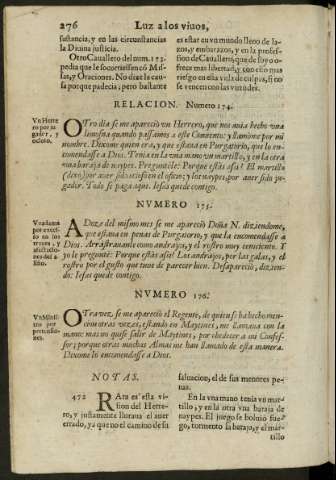 276 Luz a los viuos,
sustancia, y en las circunstancias
la Diuina justicia.
Otro Cauallero del num. 173.
pedia que le socorriessen cõ Mis-
sas, y Oraciones. No dize la cau-
sa porque padecia; pero bastante
es estar en vn mundo lleno de la-
zos, y embarazo, y en la profes-
sion de Cauallero, que de suyo o-
frece mas libertad, y con ello mas
riesgo en esta vida de culpas, si no
se vencen con las virtudes.
RELACION. Numero 174.
Vn Herre
ro por ju
gador, y
ocioso.
OTro dia se me apareciò vn Herrero, que nos auia hecho vna
limosna quando passamos a este Conuento: y llamòme por mi
nombre. Dixome quien era, y que estaua en Purgatorio, que lo en-
comendasse a Dios. Tenia en vna mano vn martillo, y en la otra
vna baraja de naypes. Preguntèle: Porque estàs assi? El martillo
(dixo) por auer sido ocioso en el oficio; y los naypes, por auer sido ju-
gador. Todo se paga aqui. Iesus quede contigo.
NVMERO 175.
A Doze del mismo mes se me apareciò Doña N. diziendome,
que estaua en penas de Purgatorio, y que la encomendasse a
Dios. Arrastrauanle como andrajos, y el rostro muy ceniciento. Y
yo le preguntè: Porque estàs assi? Los andrajos, por las galas, y el
rostro por el gusto que tuue de parecer bien. Desapareciò, dizien-
do: Iesus quede contigo.
NVMERO 176.
OTra vez, se me apareciò el Regente, de quien se ha hecho men-
cion otras vezes, estando en Maytines, me llamaua con la
mano: mas no quise salir de Maytines, por obedecer a mi Confes-
sor; porque otras muchas Almas me han llamado de esta manera.
Dixome lo encomendasse a Dios.
NOTAS.
472 RAra es esta vi-
sion del Herre-
ro, y justamente lloraua el auer
errado, ya que no el camino de su
saluacion, el de sus menores pe-
nas.
En la vna mano tenia vn mar-
tillo, y en la otra vna baraja de
naypes. El juego se boluiò fue-
go, tormento la baraja, y el mar-
tillo